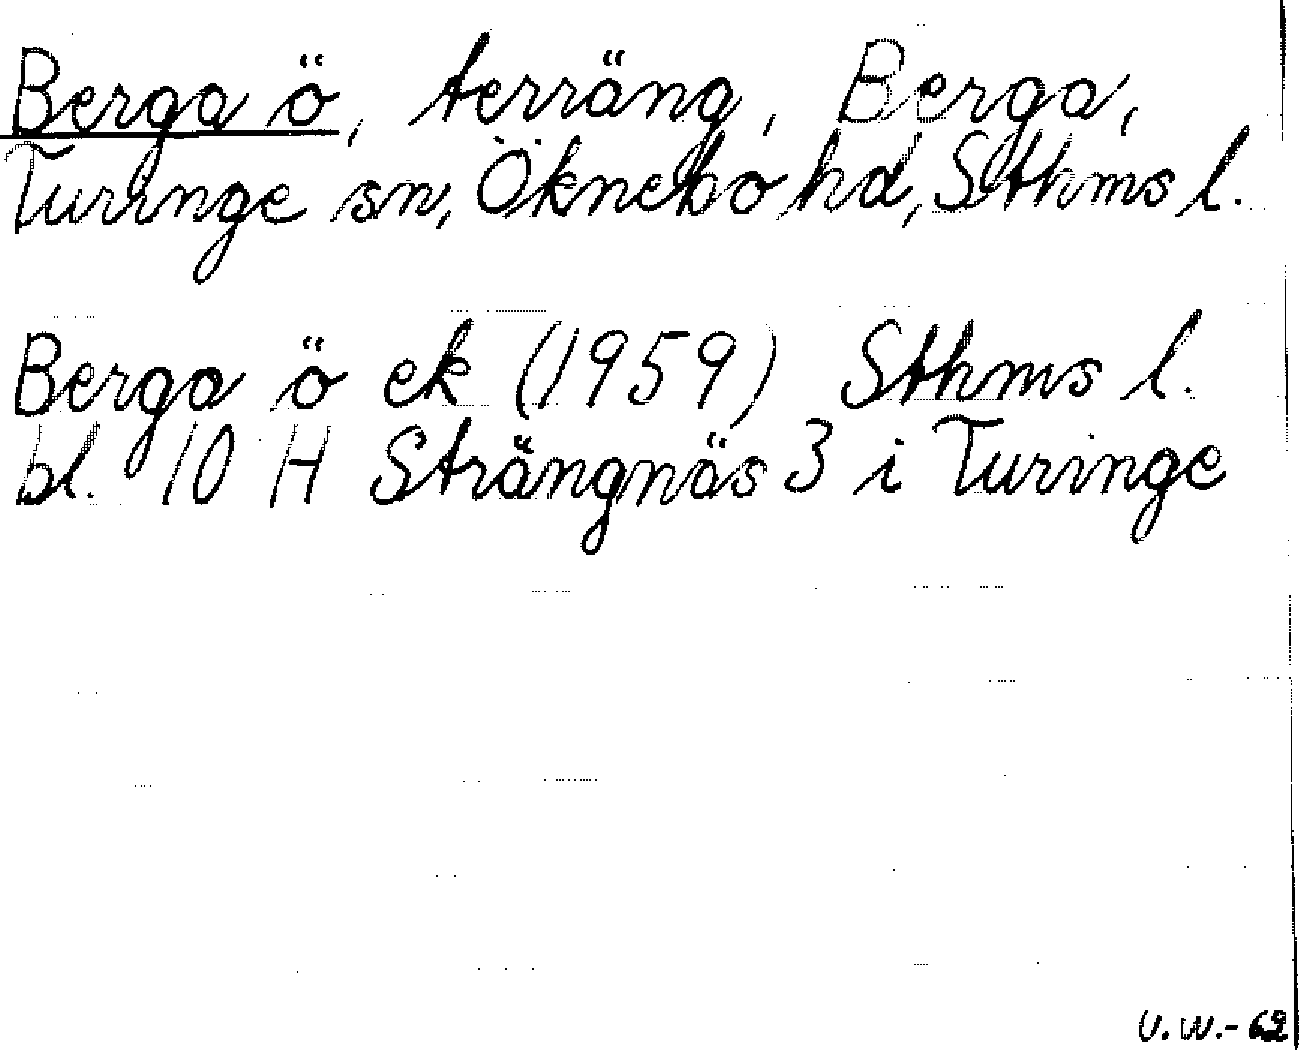 Berga ö, terräng, Berga,
Turinge sn, Öknebo hd, Sthms l.
Berga ö ek (1959) Sthms l.
bl. 10 H Strängnäs 3 i Turinge
V.W.-62